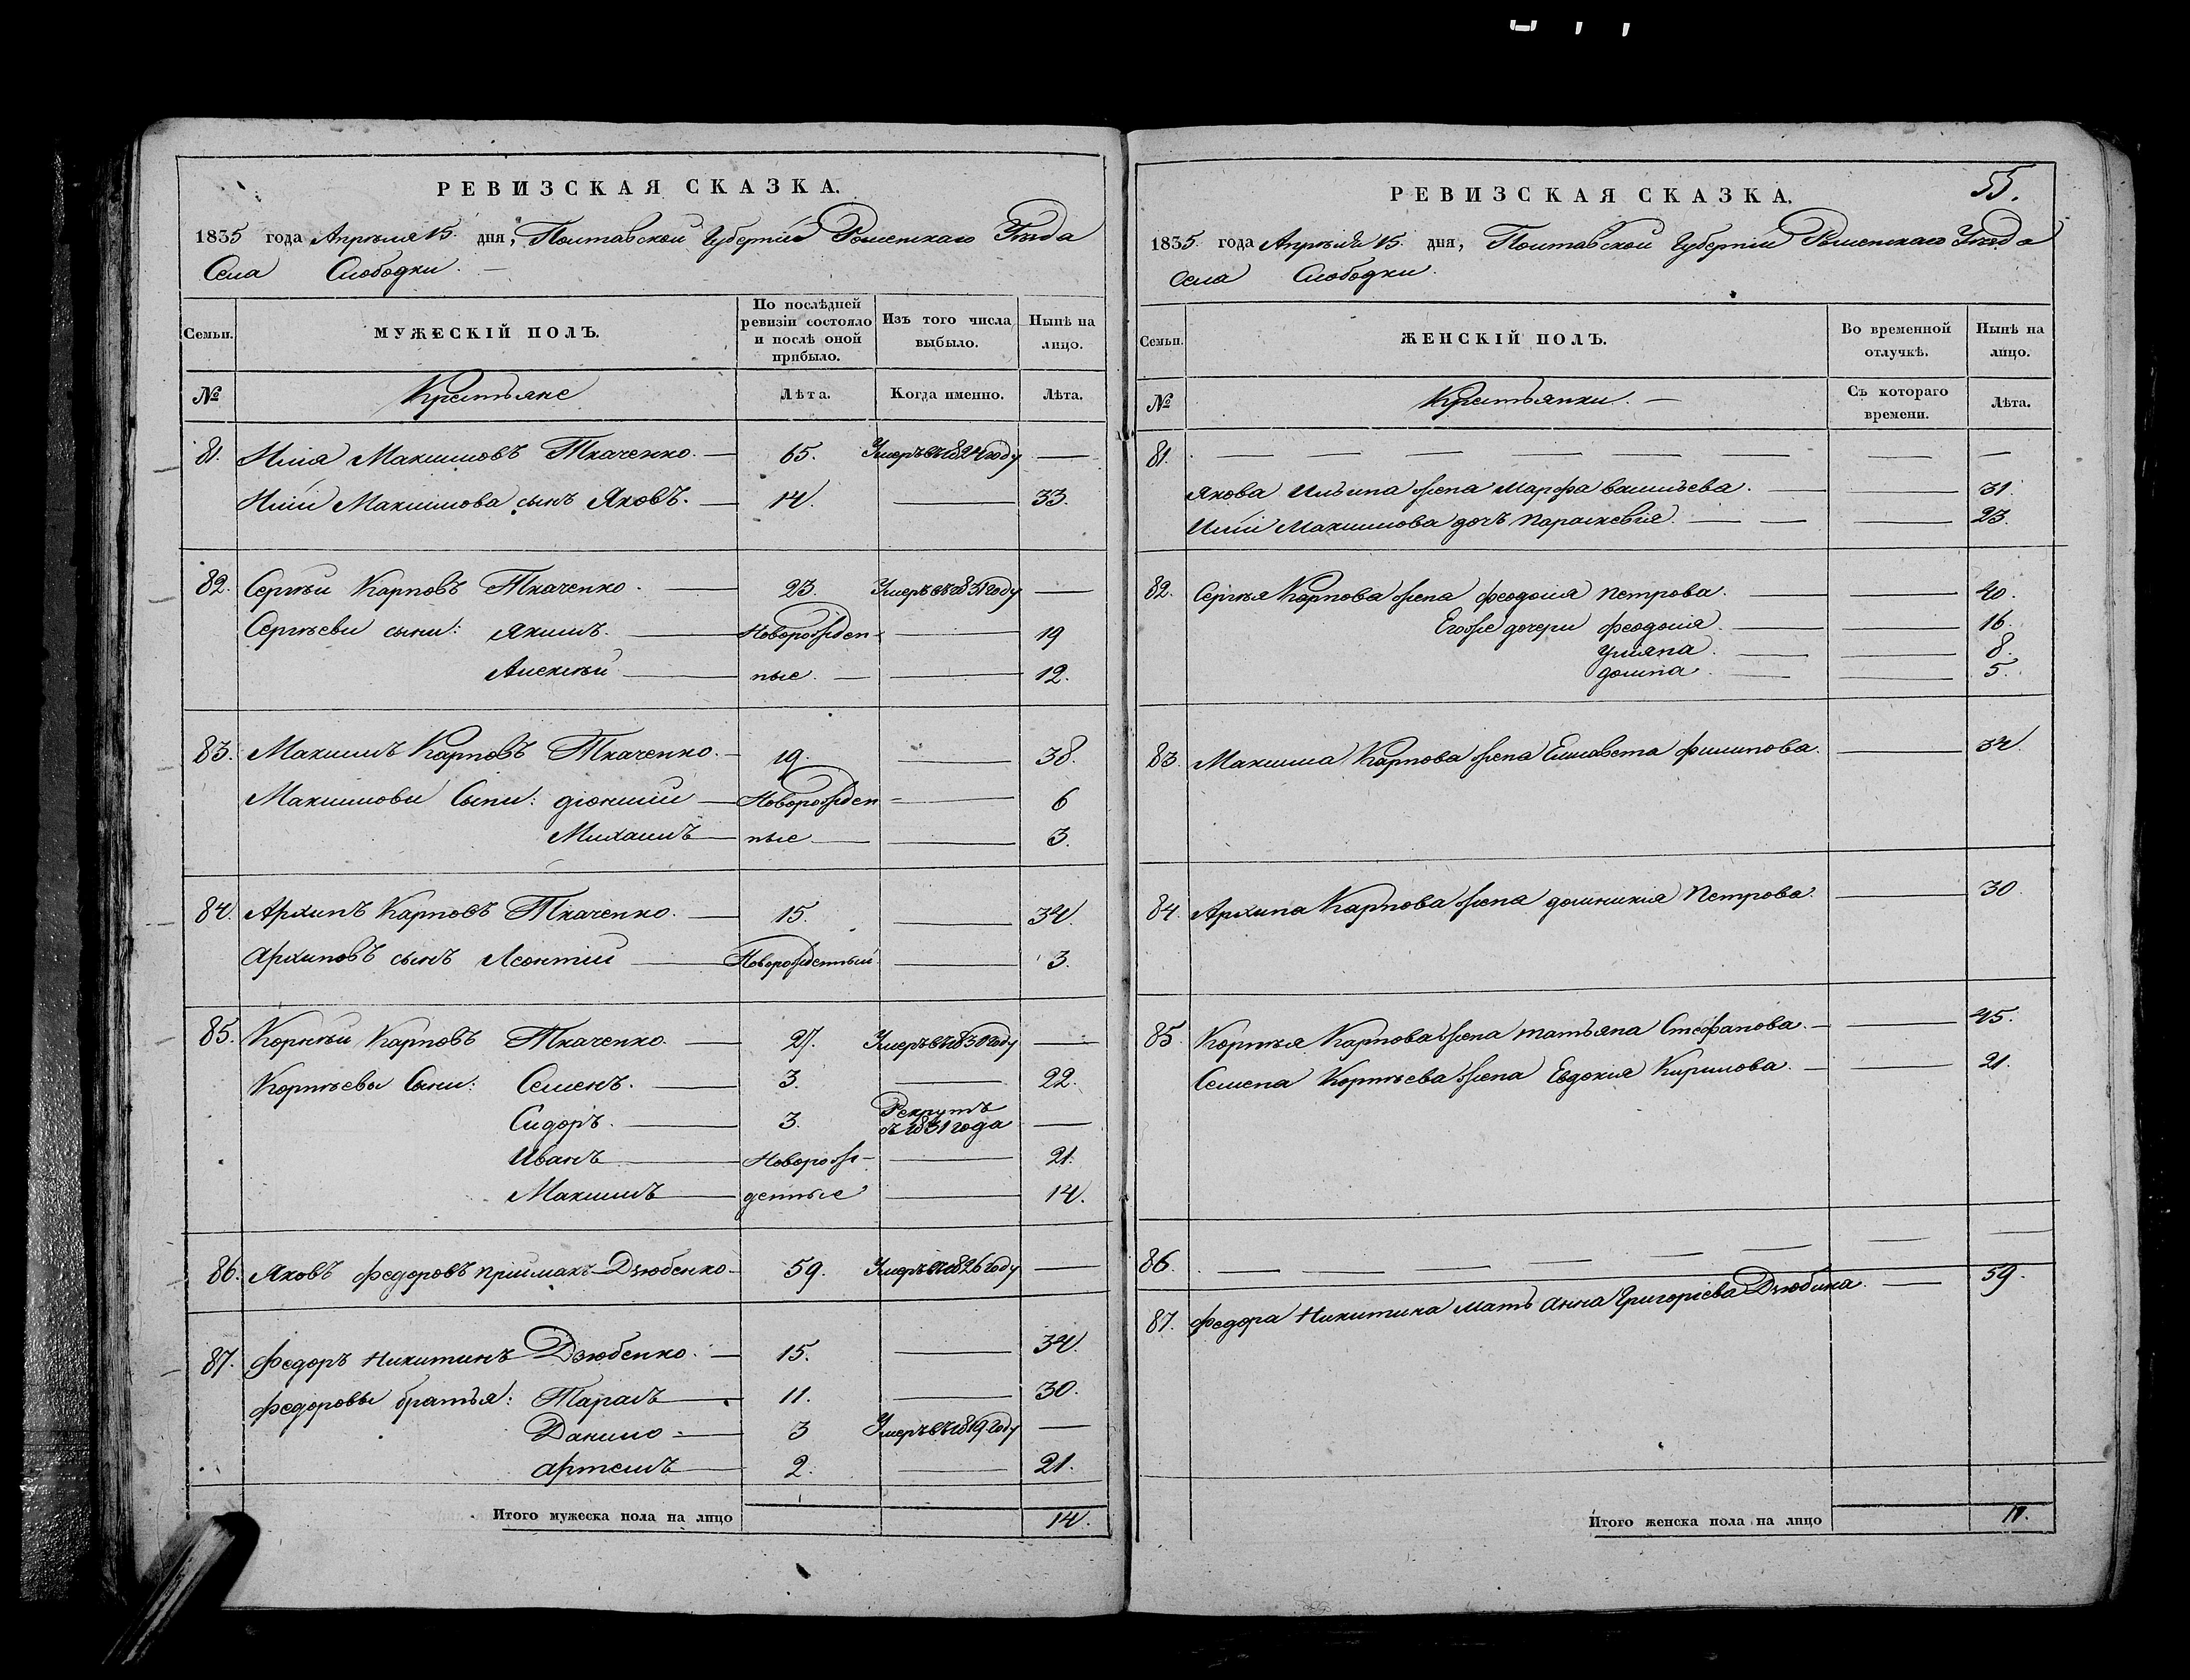 РЕВИЗСКАЯ СКАЗКА.
1835 года Апрѣля 15. дня, Полтавской Губерніи Роменскаго Уѣзда
Села Слободки.
Семьи.
МУЖЕСКІЙ ПОЛЪ.
По послѣдней ревизіи состояло и послѣ оной прибыло.
Изъ того числа выбыло.
Нынѣ на лицо.
№ Крестьяне Лѣта. Когда именно. Лѣта.
81. Илія Максимовъ Ткаченко. 65. Умеръ въ 1824 году
Иліи Максимова сынъ Яковъ. 14. 33.
82. Сергѣй Карповъ Ткаченко. 23. Умеръ въ 1831 году
Сергѣеви сыни: Якимъ. Новорожден 19
Алексѣй ные. 12.
83. Максимъ Карповъ Ткаченко. 19. 38.
Максимови Сыни: діонисій Новорожден 6
Михаилъ ные 3.
84. Архипъ Карповъ Ткаченко. 15. 34.
Архиповъ сынъ Леонтій Новорожденный 3.
85. Корнѣй Карповъ Ткаченко. 27. Умеръ въ 1830 году
Корнѣевы Сыни: Семенъ. 3. 22.
Сидоръ. 3. Рекрутъ
съ 1831 года
Иванъ Новорож- 21.
Максимъ денные 14.
86. Яковъ федоровъ приймакъ Дзюбенко. 59. Умеръ въ 1826 году
87. федоръ Никитинъ Дзюбенко. 15. 34.
федоровы братья: Тарасъ 11. 30.
Данило 3 Умеръ въ 1819 году
артемъ 2. 21.
Итого мужеска пола на лицо 14.
55.
РЕВИЗСКАЯ СКАЗКА.
1835. года Апрѣля 15. дня, Полтавской Губерніи Роменскаго Уѣзда
Села Слободки.
Семьи.
ЖЕНСКІЙ ПОЛЪ.
Во временной отлучкѣ.
Нынѣ на лицо.
№ Крестьянки. Съ котораго времени. Лѣта.
81.
Якова Ильина жена Марфа васильева. 31.
Иліи Максимова дочъ параскевія. 23.
82. Сергѣя Карпова жена феодосия петрова. 40.
Егоже дочери феодосия 16.
Уліяна. 8.
домна. 5.
83. Максима Карпова жена Елисавета филипова. 34.
84. Архипа Карпова жена домникия Петрова. 30.
85. Корнѣя Карпова жена татьяна Стефанова. 45.
Семена Корнѣева жена Евдокія Кирилова. 21.
86.
87. федора Никитина мать анна Григоріева Дзюбина. 59.
Итого женска пола на лицо 11.